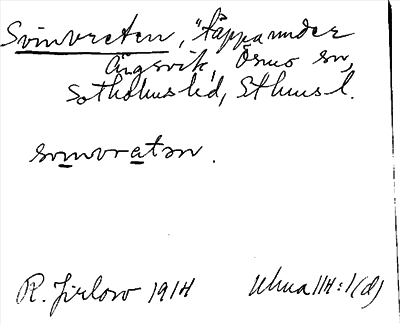 Svinvreten, "täppa under
Ängsvik, Ösmo sn,
Sotholms hd, Sthms l.
svinvretən.
R. Jirlow 1914 Uluna 114:1(d)